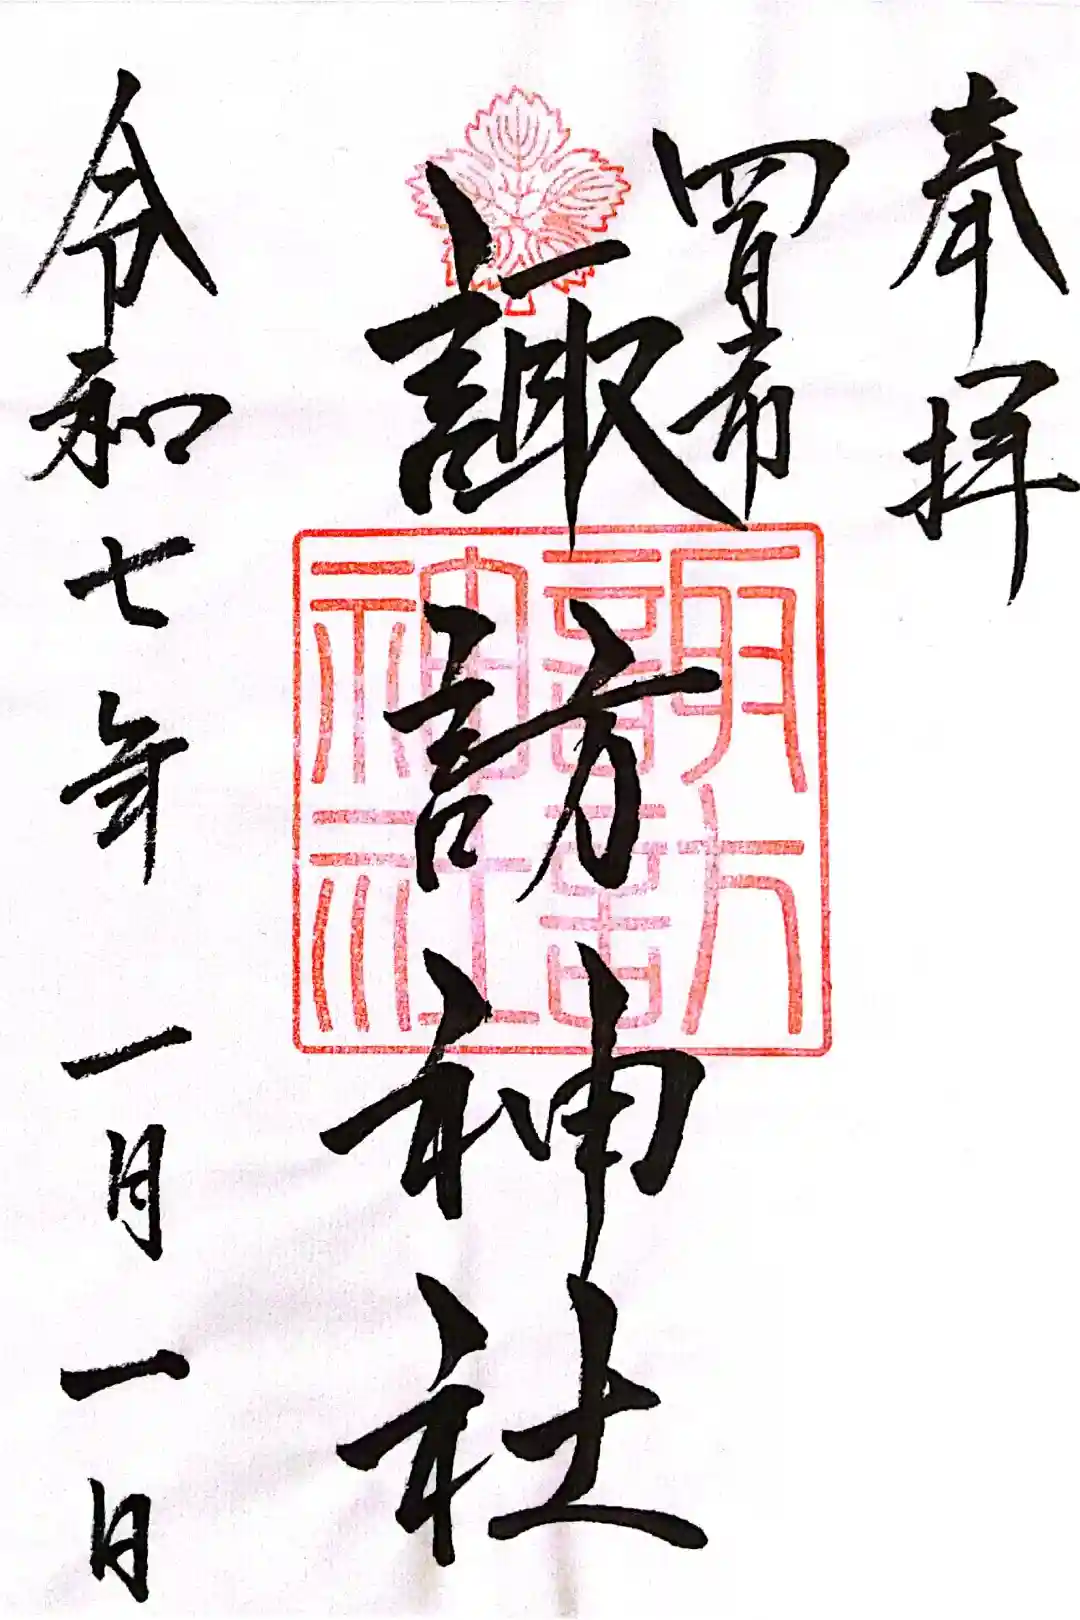 奉拝
四日市
諏訪神社
諏訪
神社
令和七年一月一日